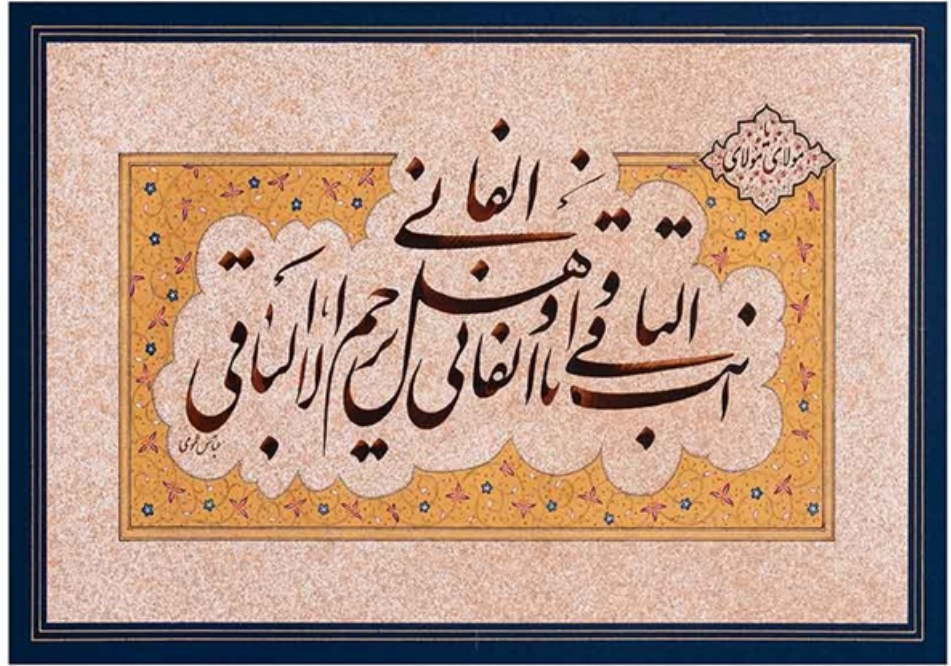 مولای یا مولای
انت الباقی و انا الفانی
و هل یرحم الفانی الا الباقی
عباس